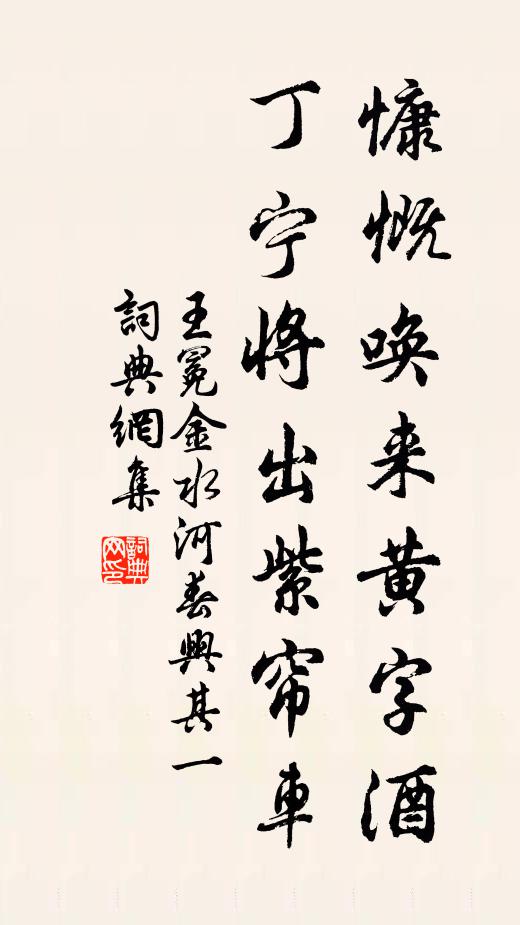 慷慨唤来黄字酒
丁宁将出紫帘車
王冕金水河春興其一
詞典網集
詞典网印